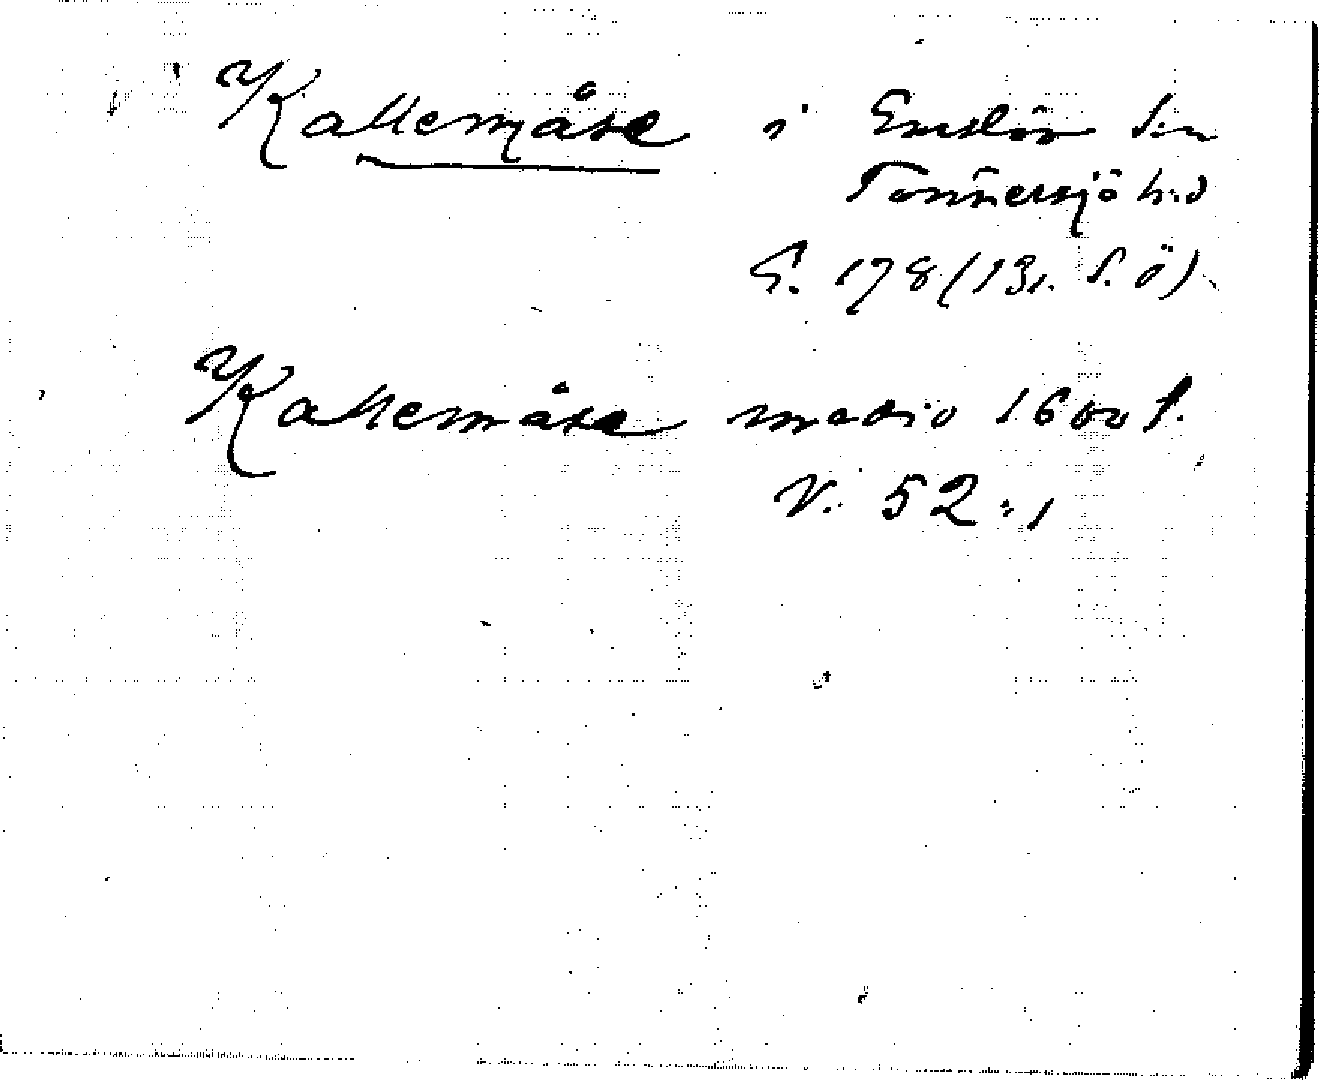 Kattemåse i Enslöv s:n
Tönnersjö h:d
S. 178 (131. S. Ö)
Kattemåse medio 1600 t.
V. 52:1